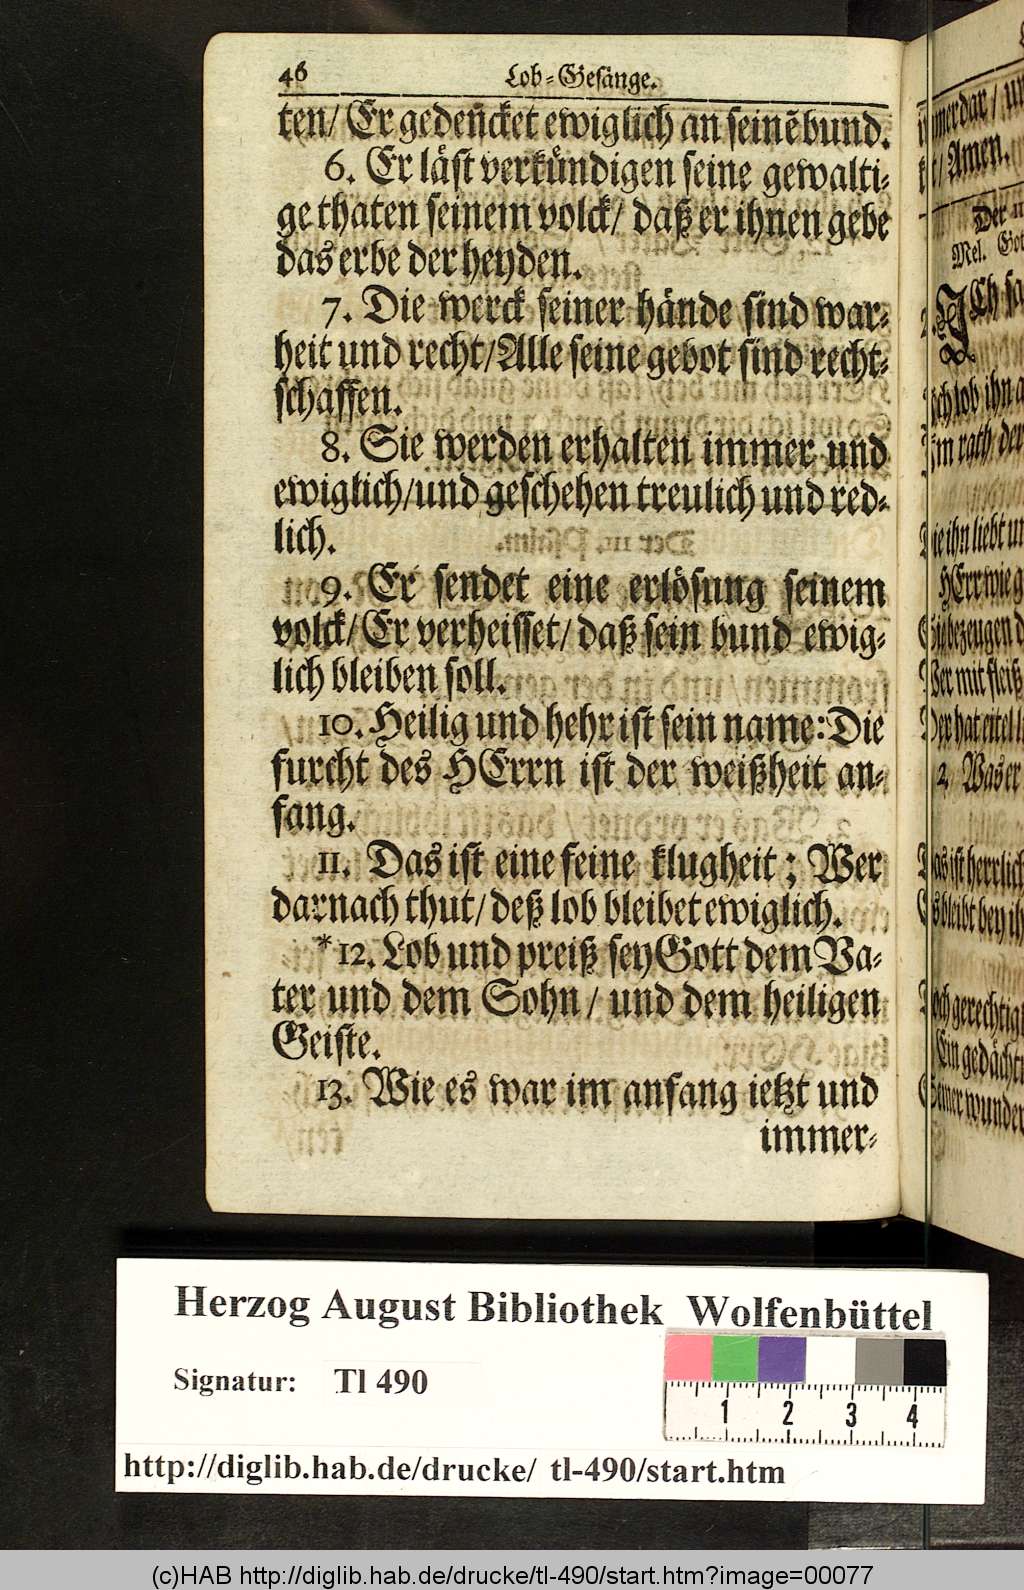 46
Lob-Gesänge.
ten/ Er gedeñcket ewiglich an seinẽ bund.
6. Er läst verkündigen seine gewalti-
ge thaten seinem volck/ daß er ihnen gebe
das erbe der heyden.
7. Die werck seiner hände sind war-
heit und recht/Alle seine gebot sind recht-
schaffen.
8. Sie werden erhalten immer und
ewiglich/und geschehen treulich und red-
lich.
9. Er sendet eine erlösung seinem
volck/Er verheisset/ daß sein bund ewig-
lich bleiben soll.
10. Heilig und hehr ist sein name: Die
furcht des HErrn ist der weißheit an-
fang.
11. Das ist eine feine klugheit; Wer
darnach thut/ deß lob bleibet ewiglich.
*12. Lob und preiß sey Gott dem Va-
ter und dem Sohn/ und dem heiligen
Geiste.
13. Wie es war im anfang ietzt und
immer-
merdar/
/Amen.
Der
Mel.
Ch
lob ihn
rath/ der
ihn liebt
HErr wie
bezeugen
Wer mit fleiß
Der hat eitel
2. Was er
ist herrlich
bleibt bey
gerechtig
Ein gedächt
wunder
Herzog August Bibliothek Wolfenbüttel
Signatur: Tl 490
1 2 3 4
http://diglib.hab.de/drucke/ tl-490/start.htm
(c)HAB http://diglib.hab.de/drucke/tl-490/start.htm?image=00077